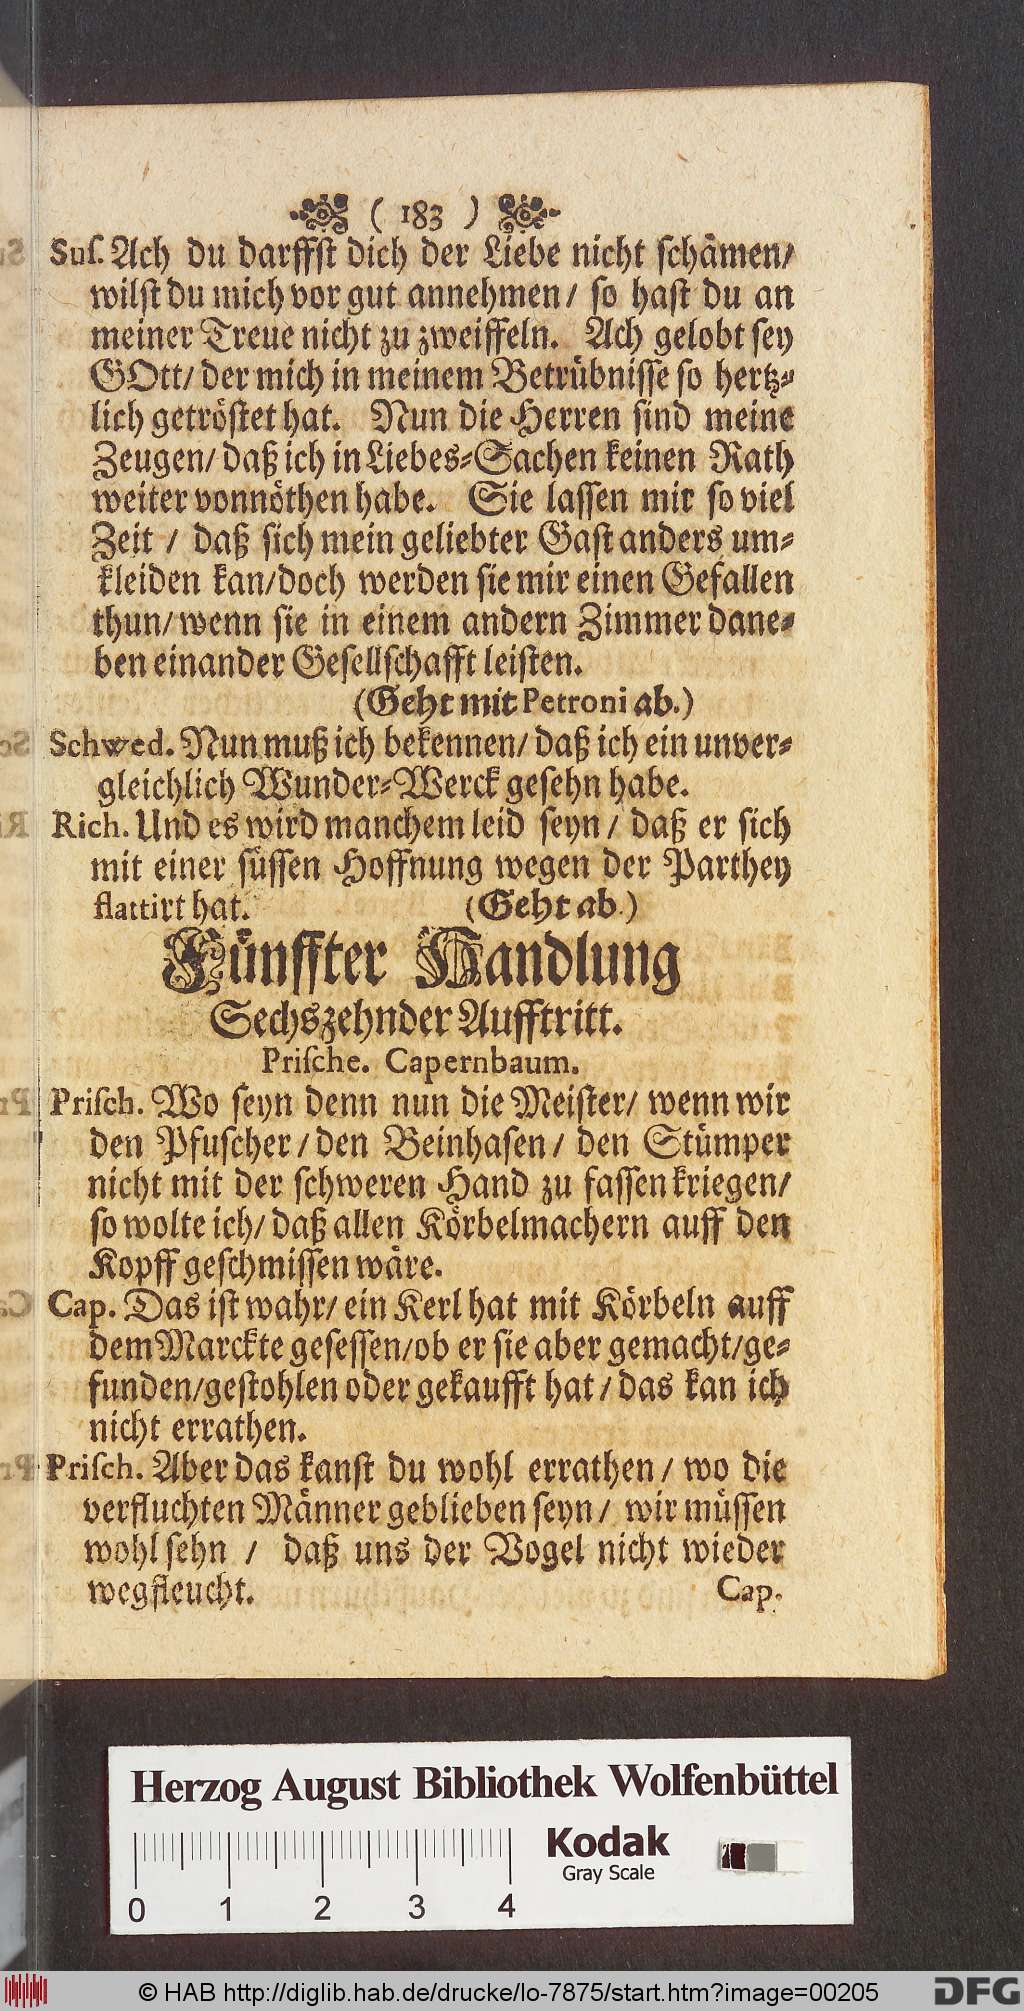 ( 183 )
Suſ. Ach du darffſt dich der Liebe nicht ſchämen/
wilſt du mich vor gut annehmen/ ſo haſt du an
meiner Treue nicht zu zweiffeln. Ach gelobt ſey
GOtt/ der mich in meinem Betrübniſſe ſo hertz-
lich getröſtet hat. Nun die Herren ſind meine
Zeugen/ daß ich in Liebes-Sachen keinen Rath
weiter vonnöthen habe. Sie laſſen mir ſo viel
Zeit / daß ſich mein geliebter Gaſt anders um-
kleiden kan/doch werden ſie mir einen Gefallen
thun/ wenn ſie in einem andern Zimmer dane-
ben einander Geſellſchafft leiſten.
(Geht mit Petroni ab.)
Schwed. Nun muß ich bekennen/ daß ich ein unver-
gleichlich Wunder-Werck geſehn habe.
Rich. Und es wird manchem leid ſeyn / daß er ſich
mit einer ſüſſen Hoffnung wegen der Parthey
flattirt hat. (Geht ab.)
Fünffter Handlung
Sechszehnder Aufftritt.
Priſche. Capernbaum.
Priſch. Wo ſeyn denn nun die Meiſter/ wenn wir
den Pfuſcher / den Beinhaſen / den Stümper
nicht mit der ſchweren Hand zu faſſen kriegen/
ſo wolte ich/ daß allen Körbelmachern auff den
Kopff geſchmiſſen wäre.
Cap. Das iſt wahr/ ein Kerl hat mit Körbeln auff
dem Marckte geſeſſen/ob er ſie aber gemacht/ge-
funden/geſtohlen oder gekaufft hat / das kan ich
nicht errathen.
Priſch. Aber das kanſt du wohl errathen / wo die
verfluchten Männer geblieben ſeyn / wir müſſen
wohl ſehn / daß uns der Vogel nicht wieder
wegfleucht. Cap.
Herzog August Bibliothek Wolfenbüttel
Kodak
Gray Scale
0 1 2 3 4
© HAB http://diglib.hab.de/drucke/lo-7875/start.htm?image=00205
DFG